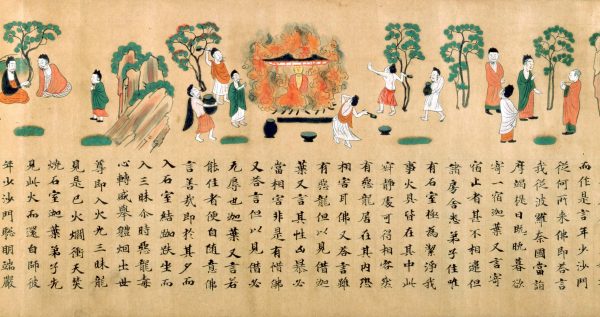 而作是言年少沙門
從何所来佛即答言
我從波羅奈國當詣
摩竭提日既晚暮欲
寄一宿迦葉又言寄
宿止者甚不相違但
諸房舍悉弟子住唯
有石室極為潔淨我
事火具皆在其中此
寂靜處可得相容然
有惡龍居在其內恐
相害耳佛又答言雖
有惡龍但以見借迦
葉又言其性凶暴必
當相害非是有惜佛
又答言但以見借必
无辱也迦葉又言若
能住者便自随意佛
言善哉即於其夕而
入石室結跏趺坐而
入三昧尒時惡龍毒
心轉盛舉體烟出世
尊即入火光三昧龍
見是已火爓衝天焚
燒石室迦葉弟子先
見此火而還白師彼
年少沙門聰明端嚴